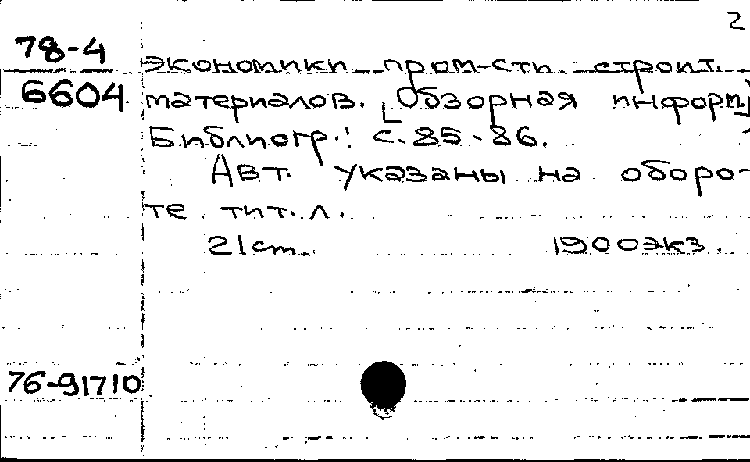 2
78-4
экономики пром-сти строит.
6604
материалов. [Обзорная информ]
Библиогр.: с. 85-86.
Авт. указаны на оборо-
те тит. л.
21 cm. 1900 экз.
76-91710